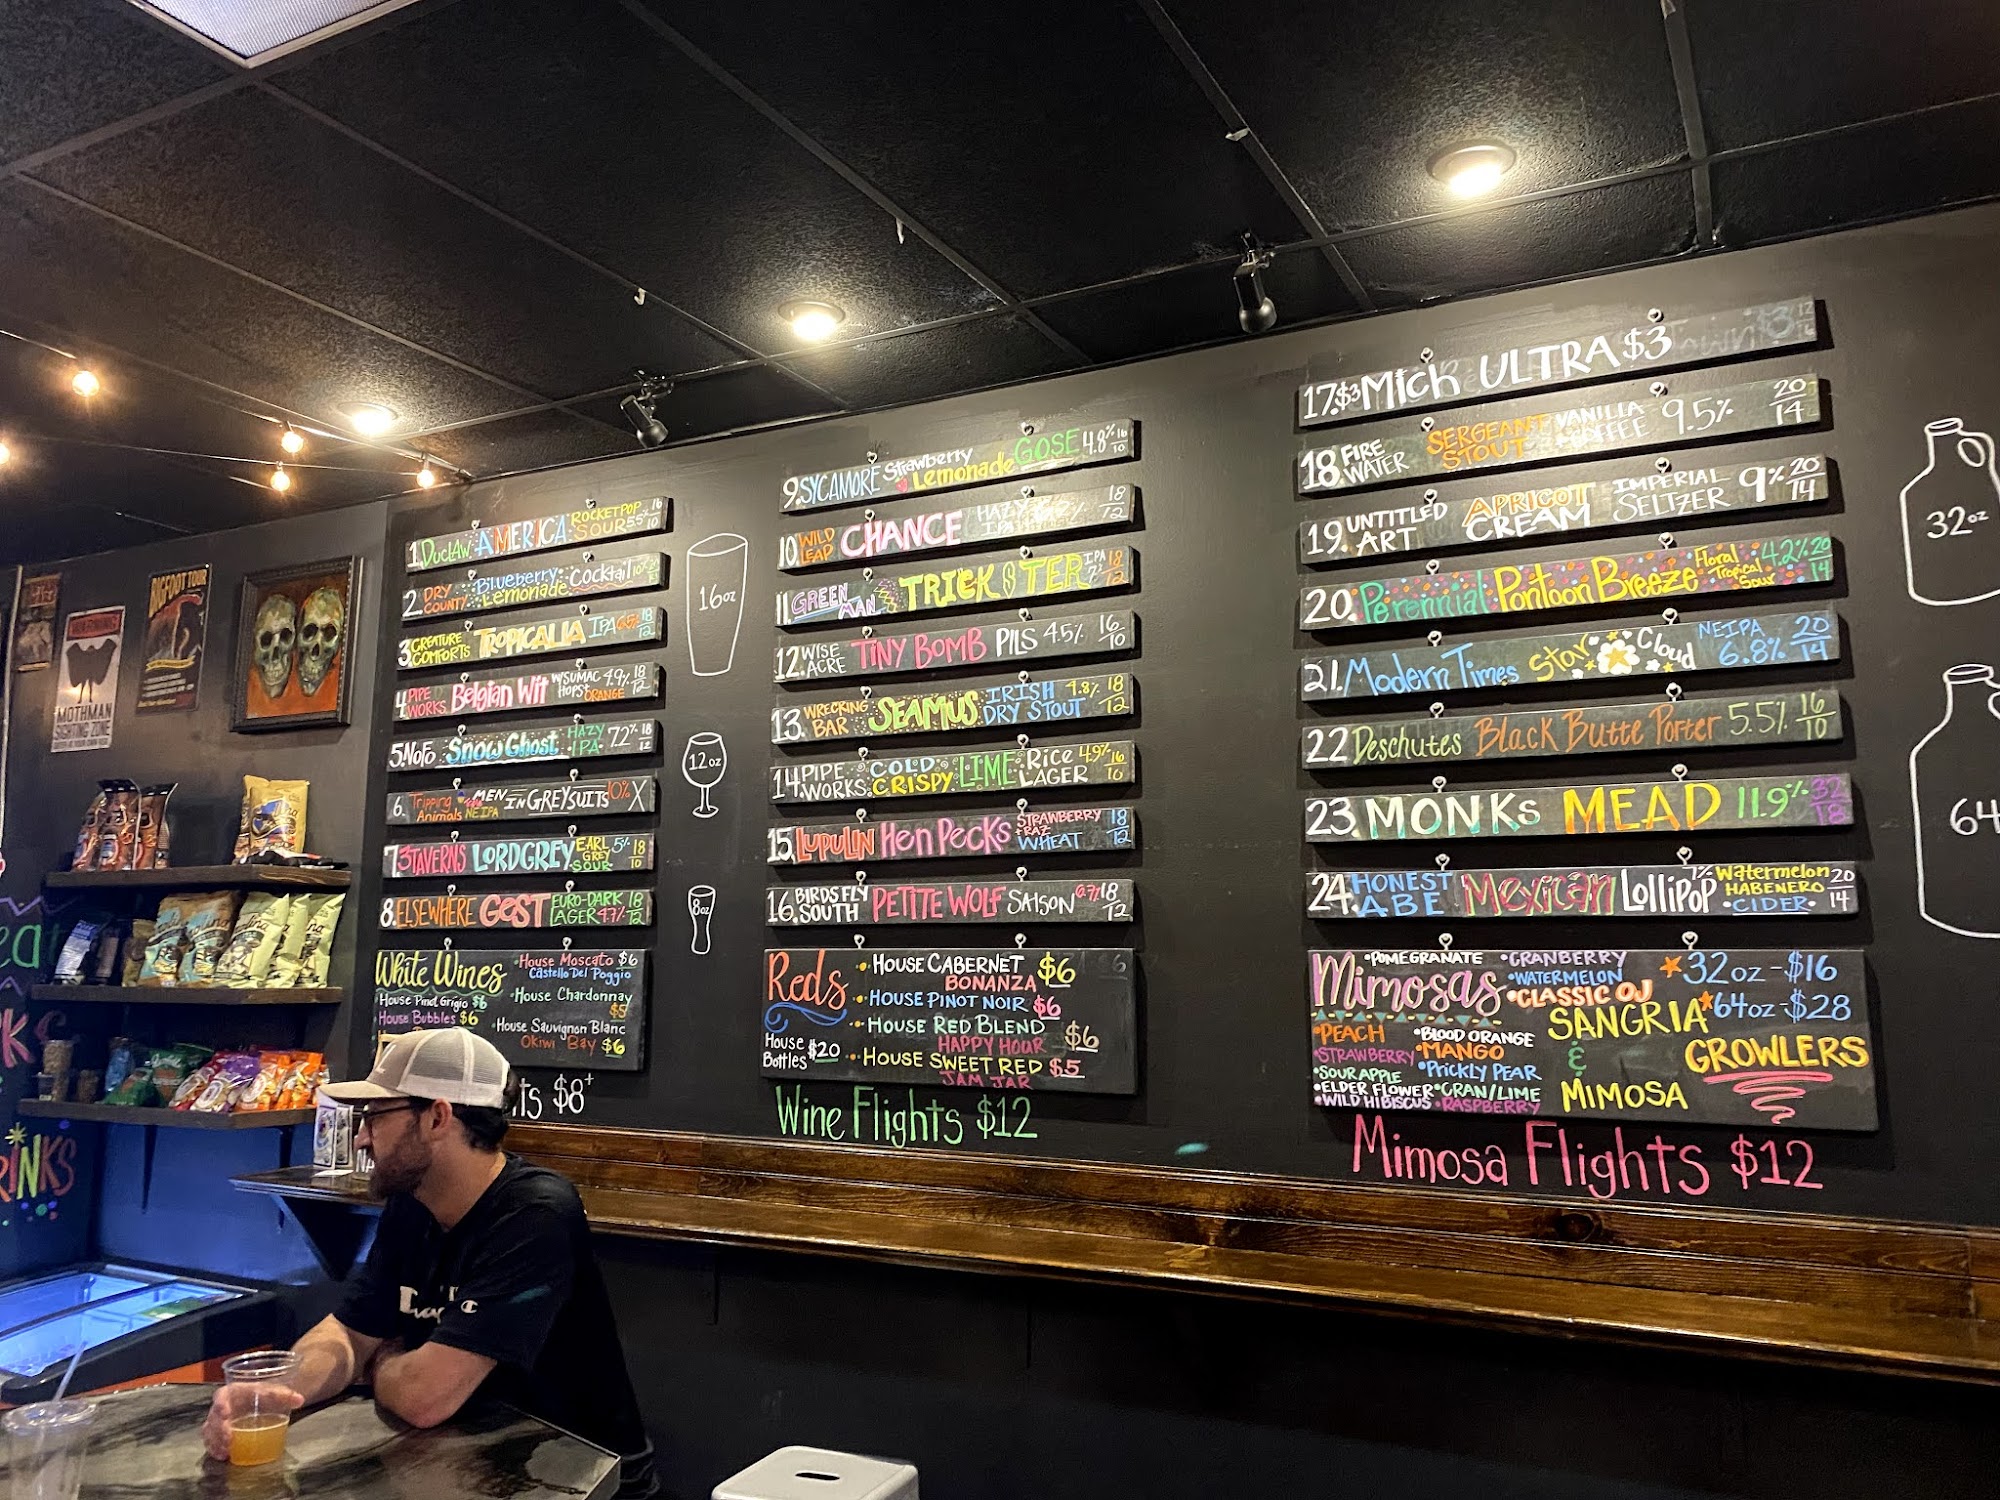 1. DUCLAW AMERICA ROCKETPOP SOUR 5.5% 16/10
2. DRY COUNTY Blueberry Lemonade Cocktail
3. CREATURE COMFORTS TROPICALIA IPA 18/12
4. PIPE WORKS Belgian Wit W/SUMAC HOPS+ ORANGE 4.9% 18/12
5. NOFO Snow Ghost HAZY IPA 7.2% 18/12
6. Tripping Animals NEIPA MEN IN GREY SUITS 10% X
7. 3 TAVERNS LORD GREY EARL GREY SOUR 5% 18/10
8. ELSEWHERE GEST EURO-DARK LAGER 4.7% 18/12
White Wines
House Pinot Grigio $6
House Bubbles $6
•House Moscato $6
Castello Del Poggio
•House Chardonnay $5
•House Sauvignon Blanc
Okiwi Bay $6
ts $8+
16oz
12oz
8oz
9. SYCAMORE Strawberry Lemonade GOSE 4.8% 16/10
10. WILD LEAP CHANCE HAZY IPA 18/12
11. GREEN MAN TRICKSTER IPA 7% 18/12
12. WISE ACRE TINY BOMB PILS 4.5% 16/10
13. WRECKING BAR SEAMUS IRISH DRY STOUT 4.8% 18/12
14. PIPE WORKS COLD CRISPY LIME Rice LAGER 4.9% 16/10
15. LUPULIN Hen Pecks STRAWBERRY + RAZ WHEAT 18/12
16. BIRDS FLY SOUTH PETITE WOLF SAISON 6.7% 18/12
Reds
House Bottles $20
•HOUSE CABERNET $6
BONANZA
•HOUSE PINOT NOIR $6
•HOUSE RED BLEND $6
HAPPY HOUR
•HOUSE SWEET RED $5
JAM JAR
Wine Flights $12
17. $3 Mich ULTRA $3
18. FIRE WATER SERGEANT STOUT VANILLA COFFEE 9.5% 20/14
19. UNTITLED ART APRICOT CREAM IMPERIAL SELTZER 9% 20/14
20. Perennial Pontoon Breeze Floral Tropical Sour 4.2% 20/14
21. Modern Times Star Cloud NEIPA 6.8% 20/14
22 Deschutes Black Butte Porter 5.5% 16/10
23. MONKS MEAD 11.9% 32/18
24. HONEST ABE Mexican LolliPOP 7% Watermelon HABENERO •CIDER• 20/14
Mimosas
•POMEGRANATE •CRANBERRY
•WATERMELON
•CLASSIC OJ
•PEACH •BLOOD ORANGE
•STRAWBERRY •MANGO
•SOUR APPLE •PRICKLY PEAR
•ELDER FLOWER •CRAN/LIME
•WILD HIBISCUS •RASPBERRY
32oz-$16
64oz-$28
SANGRIA
&
MIMOSA
GROWLERS
Mimosa Flights $12
32oz
64
BIGFOOT TOUR
WARNING
MOTHMAN
SIGHTING ZONE
RINKS